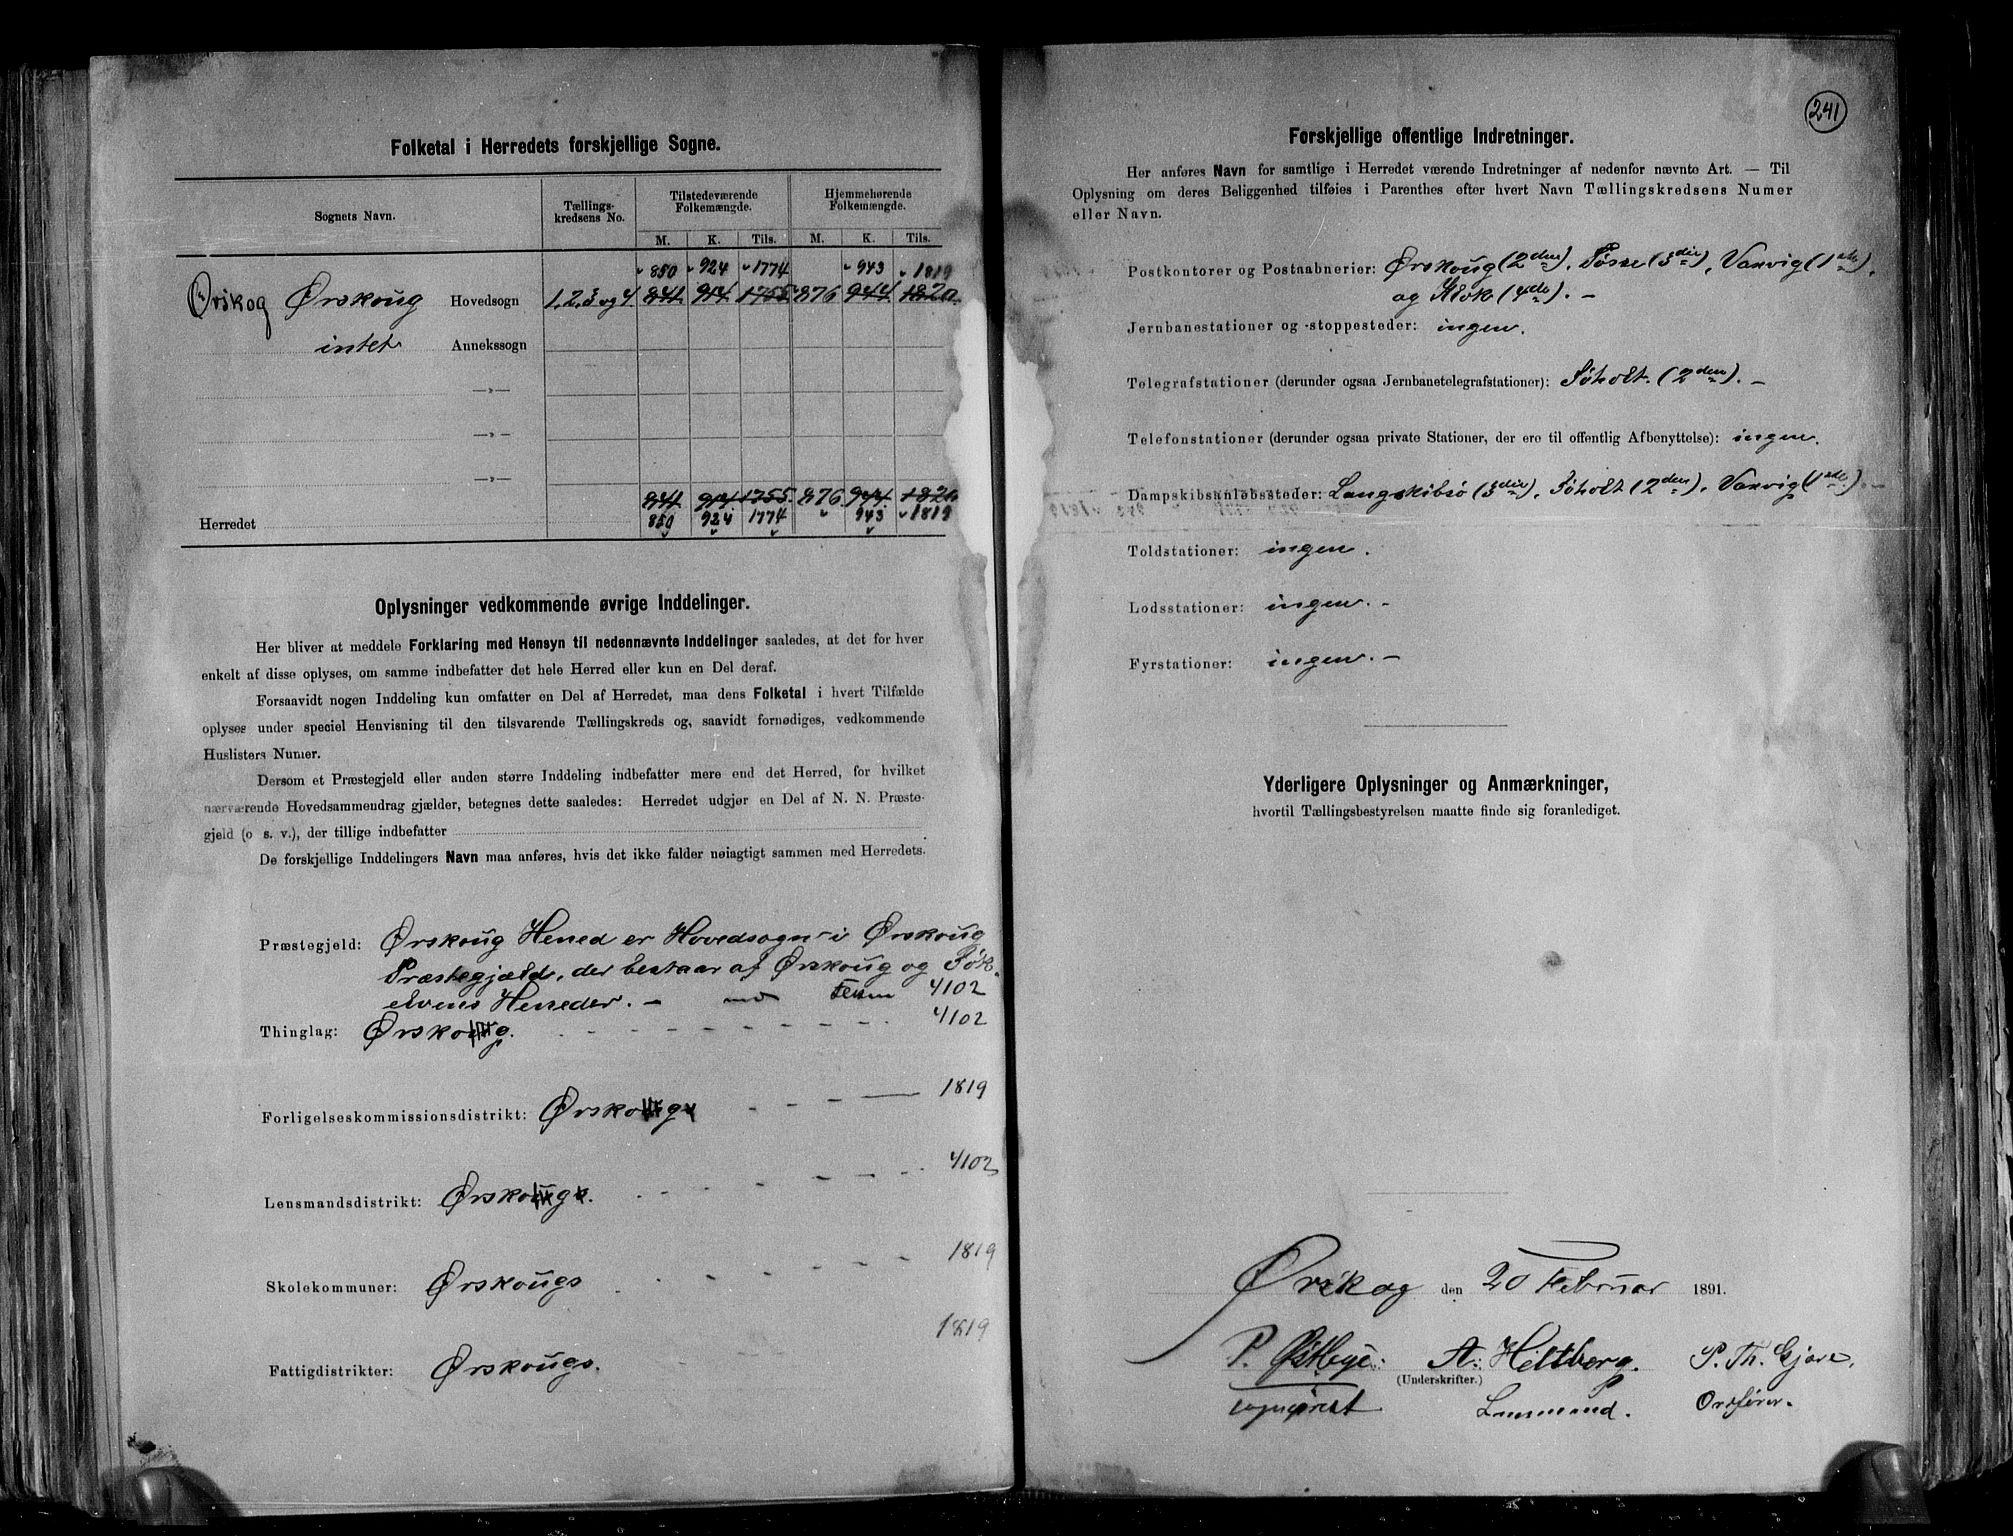 Folketal i Herredets forskjellige Sogne.
Sognets Navn.
Tællings-
kredsens No.
Tilstedeværende
Folkemængde.
Hjemmehørende
Folkemængde.
M. K. Tils. M. K. Tils.
850 924 1774 943 1819
Ørskog Ørskoug Hovedsogn 1, 2, 3 og 4 841 914 1755 876 944 1820
intet Annekssogn
—»—
—»—
—»—
841 914 1755 876 944 1820
Herredet 850 924 1774 943 1819
Oplysninger vedkommende øvrige Inddelinger.
Her bliver at meddele Forklaring med Hensyn til nedennævnte Inddelinger saaledes, at det for hver
enkelt af disse oplyses, om samme indbefatter det hele Herred eller kun en Del deraf.
Forsaavidt nogen Inddeling kun omfatter en Del af Herredet, maa dens Folketal i hvert Tilfælde
oplyses under speciel Henvisning til den tilsvarende Tællingskreds og, saavidt fornødiges, vedkommende
Huslisters Numer.
Dersom et Præstegjeld eller anden større Inddeling indbefatter mere end det Herred, for hvilket
nærværende Hovedsammendrag gjælder, betegnes dette saaledes: Herredet udgjør en Del af N. N. Præste-
gjeld (o s. v.), der tillige indbefatter
De forskjellige Inddelingers Navn maa anføres, hvis det ikke falder nøiagtigt sammen med Herredets.
Præstegjeld: Ørskoug Herred er Hovedsogn i Ørskoug
Præstegjæld, der bestaar af Ørskoug og Søk-
elvens Herreder. — 4102
Thinglag: Ørskoug. 4102
Forligelseskommissionsdistrikt: Ørskougs 1819
Lensmandsdistrikt: Ørskougs. 4102
Skolekommuner: Ørskougs 1819
Fattigdistrikter: Ørskougs. 1819
241
Forskjellige offentlige Indretninger.
Her anføres Navn for samtlige i Herredet værende Indretninger af nedenfor nævnte Art. — Til
Oplysning om deres Beliggenhed tilføies i Parenthes efter hvert Navn Tællingskredsens Numer
eller Navn.
Postkontorer og Postaabnerier: Ørskoug (2den), (3die), Vaxvig (1ste),
og (4de). —
Jernbanestationer og -stoppesteder: ingen.
Telegrafstationer (derunder ogsaa Jernbanetelegrafstationer): Søholt. (2den). —
Telefonstationer (derunder ogsaa private Stationer, der ere til offentlig Afbenyttelse): ingen.
Dampskibsanløbssteder: Langskibsø (3die), Søholt (2den), Vaxvig (1ste). —
Toldstationer: ingen.
Lodsstationer: ingen. —
Fyrstationer: ingen. —
Yderligere Oplysninger og Anmærkninger,
hvortil Tællingsbestyrelsen maatte finde sig foranlediget.
Ørskog den 20 Februar 1891.
P. Østbye. A. Heltberg. P. Th. Gjøre,
(Underskrifter.)
sogneprest Lensmand. Ordfører.